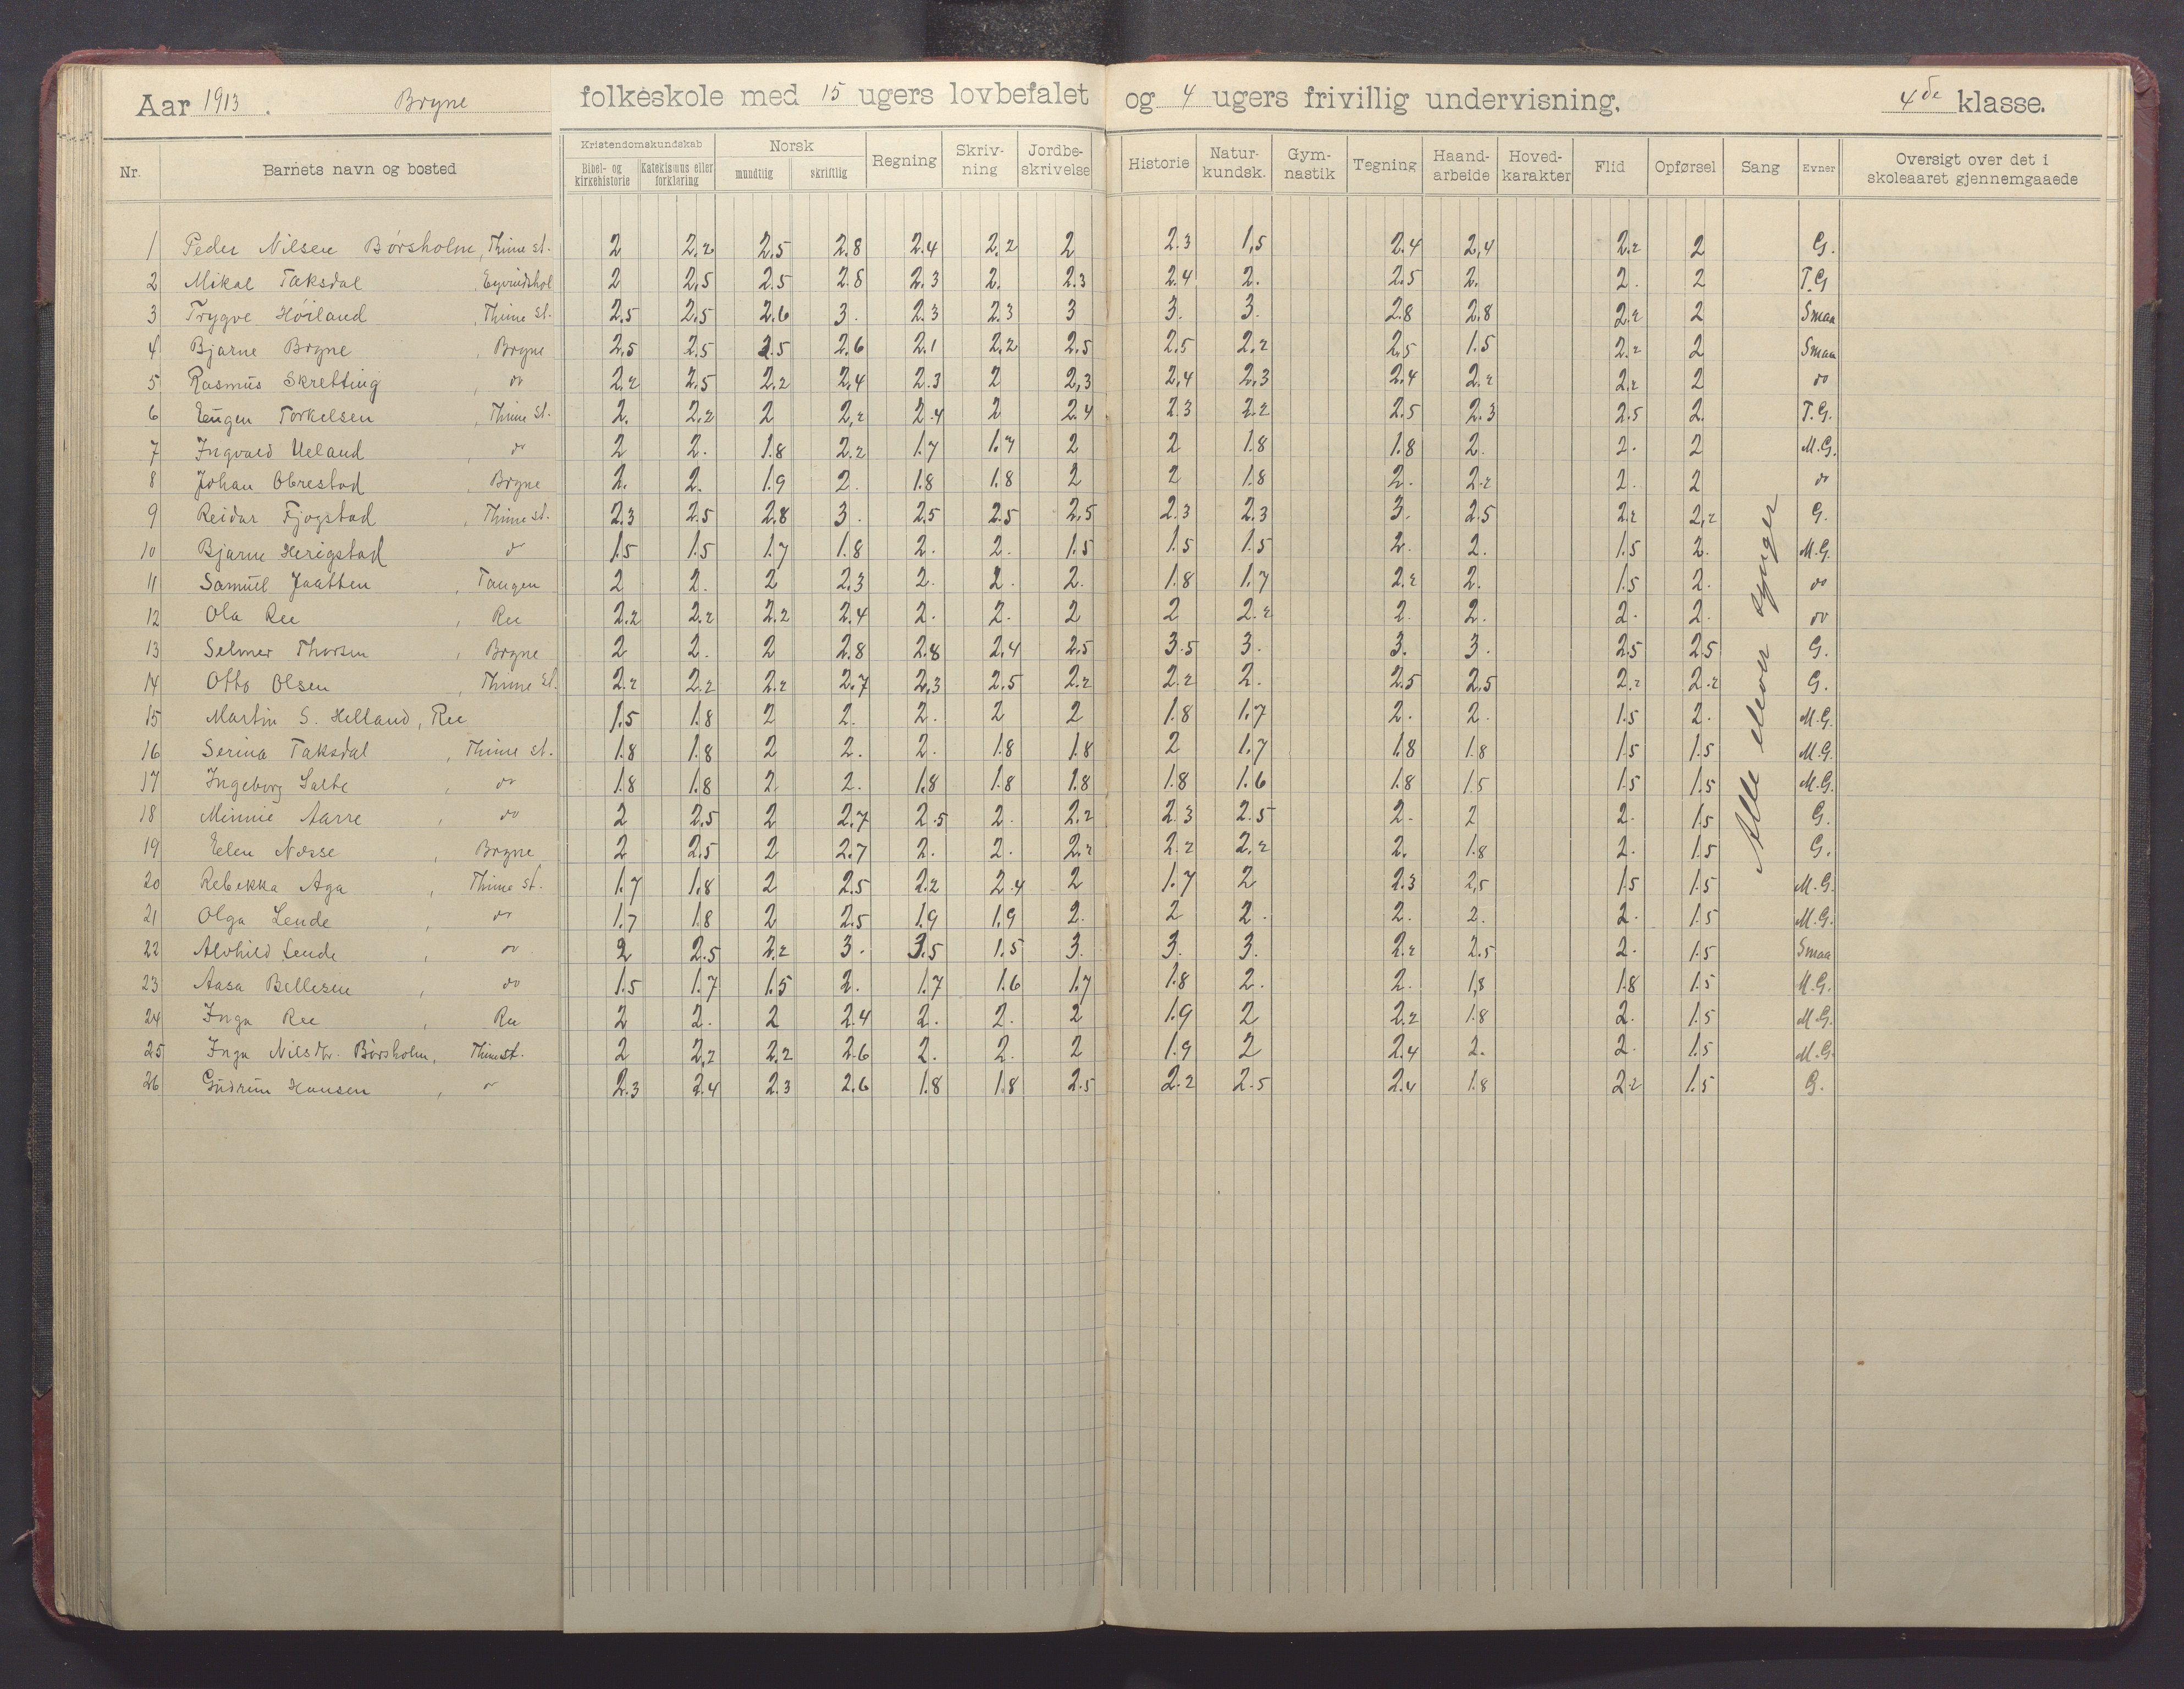 Aar 1913. Bryne folkeskole med 15 ugers lovbefalet og 4 ugers frivillig undervisning. 4de klasse.
Nr. Barnets navn og bosted Kristendomskundskab Bibel- og kirkehistorie Katekismus eller forklaring Norsk mundtlig skriftlig Regning Skriv-ning Jordbe-skrivelse Historie Natur-kundsk. Gym-nastik Tegning Haand-arbeide Hoved-karakter Flid Opførsel Sang Evner Oversigt over det i skoleaaret gjennemgaaede
1 Peder Nilsen Börsholm, Thime st. 2 2.2 2.5 2.8 2.4 2.2 2 2.3 1.5 2.4 2.4 2.2 2 G.
2 Mikal Taksdal, Eyvindshol 2 2.5 2.5 2.8 2.3 2. 2.3 2.4 2. 2.5 2. 2. 2 T.G
3 Trygve Höiland, Thime st. 2.5 2.5 2.6 3. 2.3 2.3 3 3. 3. 2.8 2.8 2.2 2 Smaa
4 Bjarne Bryne, Bryne 2.5 2.5 2.5 2.6 2.1 2.2 2.5 2.5 2.2 2.5 1.5 2.2 2 Smaa
5 Rasmus Skretting, do 2.2 2.5 2.2 2.4 2.3 2 2.3 2.4 2.3 2.4 2.2 2.2 2 do
6 Eugen Torkelsen, Thime st. 2. 2.2 2 2.2 2.4 2 2.4 2.3 2.2 2.5 2.3 2.5 2. T.G.
7 Ingvald Ueland, do 2 2. 1.8 2.2 1.7 1.7 2 2 1.8 1.8 2. 2. 2 M.G.
8 Johan Obrestad, Bryne 2. 2. 1.9 2. 1.8 1.8 2 2 1.8 2. 2.2 2. 2 do
9 Reidar Fjogstad, Thime st. 2.3 2.5 2.8 3. 2.5 2.5 2.5 2.3 2.3 3. 2.5 2.2 2.2 G.
10 Bjarne Herigstad do 1.5 1.5 1.7 1.8 2. 2. 1.5 1.5 1.5 2. 2. 1.5 2. M.G.
11 Samuel Jaatten, Tangen 2 2. 2 2.3 2. 2. 2. 1.8 1.7 2.2 2. 1.5 2. do
12 Ola Ree, Ree 2.2 2.2 2.2 2.4 2. 2. 2 2 2.2 2. 2. 2. 2. do
13 Selmer Thorsen, Bryne 2 2. 2 2.8 2.8 2.4 2.5 3.5 3. 3. 3. 2.5 2.5 G.
14 Otto Olsen, Thime st. 2.2 2.2 2.2 2.7 2.3 2.5 2.2 2.2 2. 2.5 2.5 2.2 2.2 G.
15 Martin S. Helland, Ree 1.5 1.8 2 2. 2. 2 2 1.8 1.7 2. 2. 1.5 2. M.G.
16 Serina Taksdal, Thime st. 1.8 1.8 2 2. 2. 1.8 1.8 2 1.7 1.8 1.8 1.5 1.5 M.G.
17 Ingeborg Salte, do 1.8 1.8 2 2. 1.8 1.8 1.8 1.8 1.6 1.8 1.5 1.5 1.5 M.G.
18 Minnie Aarre, do 2 2.5 2 2.7 2.5 2. 2.2 2.3 2.5 2. 2 2. 1.5 G.
19 Elen Næsse, Bryne 2 2.5 2 2.7 2. 2. 2.2 2.2 2.2 2. 1.8 2. 1.5 G.
20 Rebekka Aga, Thime st. 1.7 1.8 2 2.5 2.2 2.4 2 1.7 2 2.3 2.5 1.5 1.5 M.G.
21 Olga Lende, do 1.7 1.8 2 2.5 1.9 1.9 2. 2 2. 2. 2. 2. 1.5 M.G.
22 Alvhild Lende, do 2 2.5 2.2 3. 3.5 1.5 3. 3. 3. 2.2 2.5 2. 1.5 Smaa
23 Aasa Bellesen, do 1.5 1.7 1.5 2. 1.7 1.6 1.7 1.8 2. 2. 1.8 1.8 1.5 M.G.
24 Inga Ree, Ree 2 2. 2 2.4 2. 2. 2 1.9 2 2.2 1.8 2. 1.5 M.G.
25 Inga Nilsdtr. Börsholm, Thime st. 2 2.2 2.2 2.6 2. 2. 2 1.9 2 2.4 2. 2. 1.5 M.G.
26 Gudrun Hansen, do 2.3 2.4 2.3 2.6 1.8 1.8 2.5 2.2 2.5 2.4 1.8 2.2 1.5 G.
Alle elever synger